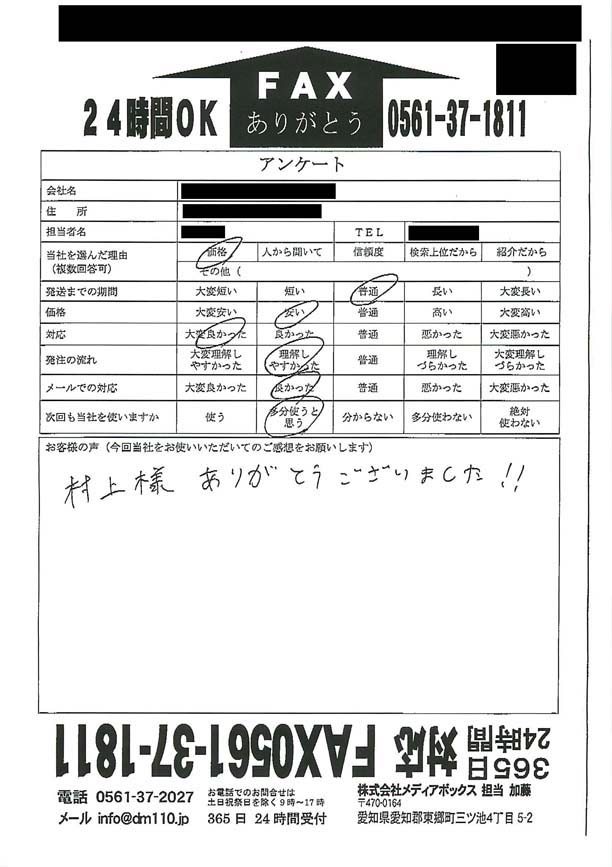 FAX
ありがとう
24時間OK
0561-37-1811
アンケート
会社名
住 所
担当者名 TEL
当社を選んだ理由（複数回答可） 価格 人から聞いて 信頼度 検索上位だから 紹介だから
その他（ ）
発送までの期間 大変短い 短い 普通 長い 大変長い
価格 大変安い 安い 普通 高い 大変高い
対応 大変良かった 良かった 普通 悪かった 大変悪かった
発注の流れ 大変理解しやすかった 理解しやすかった 普通 理解しづらかった 大変理解しづらかった
メールでの対応 大変良かった 良かった 普通 悪かった 大変悪かった
次回も当社を使いますか 使う 多分使うと思う 分からない 多分使わない 絶対使わない
お客様の声（今回当社をお使いいただいてのご感想をお願いします）
村上様 ありがとうございました!!
365日 24時間 対応 FAX0561-37-1811
電話 0561-37-2027
メール info@dm110.jp
お電話でのお問合せは
土日祝祭日を除く9時～17時
365日 24時間受付
株式会社メディアボックス 担当 加藤
〒470-0164
愛知県愛知郡東郷町三ツ池4丁目5-2